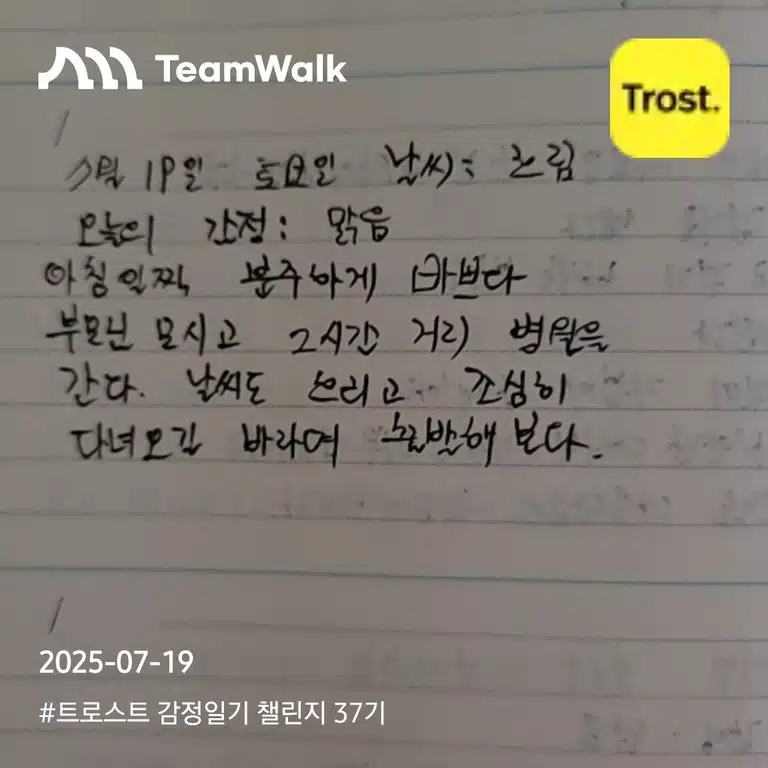 TeamWalk
Trost.
7월 19일 토요일 날씨: 흐림
오늘의 감정: 맑음
아침일찍 분주하게 바쁘다
부모님 모시고 2시간 거리 병원을
간다. 날씨도 흐리고 조심히
다녀오길 바라며 출발해 보다.
2025-07-19
#트로스트 감정일기 챌린지 37기